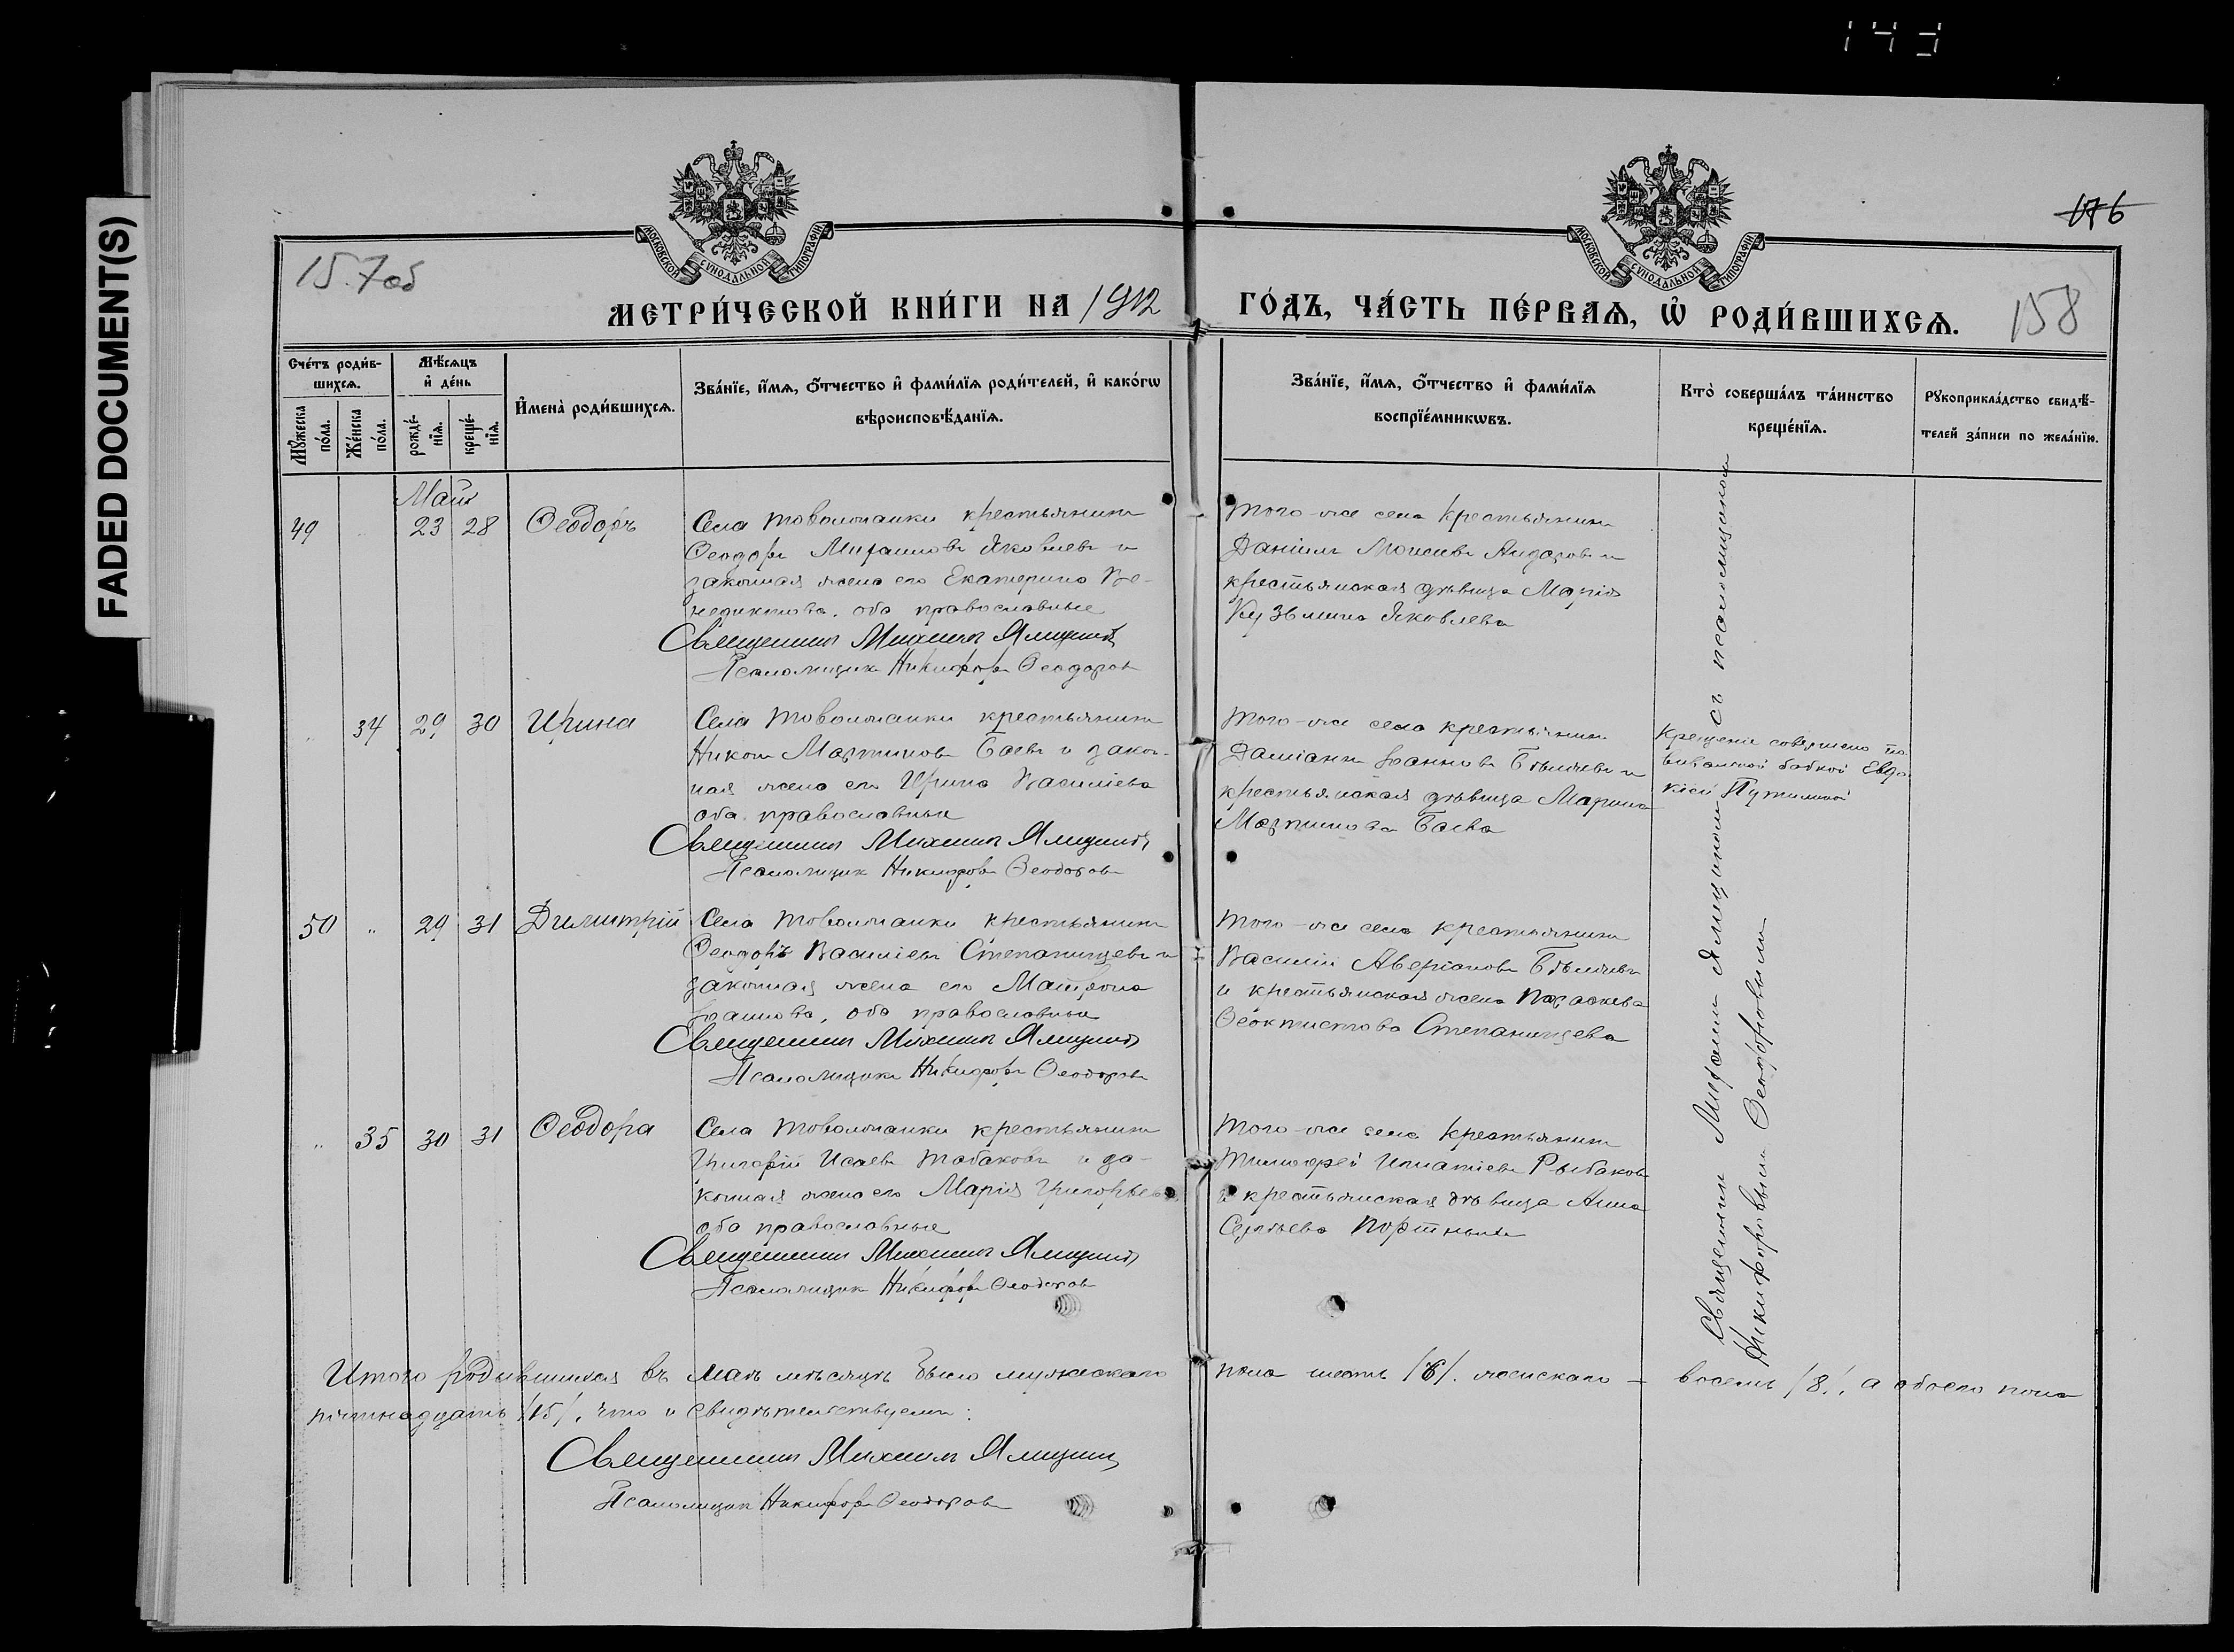 FADED DOCUMENT(S)
143
176
157об
158
МОСКОВСКОЙ СѴНОДАЛЬНОЙ ТИПОГРАФІИ
МОСКОВСКОЙ СѴНОДАЛЬНОЙ ТИПОГРАФІИ
МЕТРИ́ЧЕСКОЙ КНИ́ГИ НА 1912
ГО́ДЪ, ЧА́СТЬ ПЕ́РВАѦ, Ѡ҆ РОДИ́ВШИХСѦ.
Сче́тъ роди́в-
шихсѧ.
Мꙋ́жеска
по́ла.
Же́нска
по́ла.
Мѣ́сѧцъ
и҆ де́нь
рожде́-
нїѧ.
креще́-
нїѧ.
И҆мена̀ роди́вшихсѧ.
Зва́нїе, и҆́мѧ, ѻ҆́тчество и҆ фами́лїѧ роди́телей, и҆ како́гѡ
вѣроисповѣ́данїѧ.
Зва́нїе, и҆́мѧ, ѻ҆́тчество и҆ фами́лїѧ
воспрїе́мникѡвъ.
Кто̀ соверша́лъ та́инство
креще́нїѧ.
Рꙋкоприкла́дство свидѣ́-
телей за́писи по жела́нїю.
Май
49
23 28
Ѳеодоръ
Села Товоложанки крестьянинъ
Ѳеодоръ Михаиловъ Яковлевъ и
законная жена его Екатерина Ве-
недиктова, оба православные
Священникъ Михаилъ Ямицкий
Псаломщикъ Никифоръ Ѳеодоровъ
Того-же села крестьянинъ
Даніилъ Моисеевъ и
крестьянская дѣвица Марія
Кузьмина Яковлева
34 29 30
Ирина
Села Товоложанки крестьянинъ
Никонъ Мартиновъ Баевъ и закон-
ная жена его Ирина Василіева
оба православные
Священникъ Михаилъ Ямицкий
Псаломщикъ Никифоръ Ѳеодоровъ
Того-же села крестьянинъ
Даміанъ Іоанновъ Бѣляевъ и
крестьянская дѣвица Марина
Мартинова Баева
Крещеніе совершено по-
вивальной бабкой Евдо-
кіей Путилиной
50 „ 29 31
Димитрій
Села Товоложанки крестьянинъ
Ѳеодоръ Василіевъ Степанищевъ и
законная жена его Матрона
Іоаннова, оба православные
Священникъ Михаилъ Ямицкий
Псаломщикъ Никифоръ Ѳеодоровъ
Того-же села крестьянинъ
Василій Аверіановъ Бѣляевъ
и крестьянская жена Параскева
Ѳеоктистова Степанищева
„ 35 30 31
Ѳеодора
Села Товоложанки крестьянинъ
Григорій Исаевъ Табаковъ и за-
конная жена его Марія Григорьева
оба православные
Священникъ Михаилъ Ямицкий
Псаломщикъ Никифоръ Ѳеодоровъ
Того-же села крестьянинъ
Тимофей Игнатіевъ Рыбаковъ
и крестьянская дѣвица Анна
Сергѣева Портныхъ
Священникъ Михаилъ съ псаломщикомъ
Никифоромъ Ѳеодоровымъ
Итого родившихся въ маѣ мѣсяцѣ было мужескаго
пола шесть /6/. женскаго — восемь /8/, а обоего пола
пятнадцать /15/, что и свидѣтельствуемъ:
Священникъ Михаилъ Ямицкий
Псаломщикъ Никифоръ Ѳеодоровъ